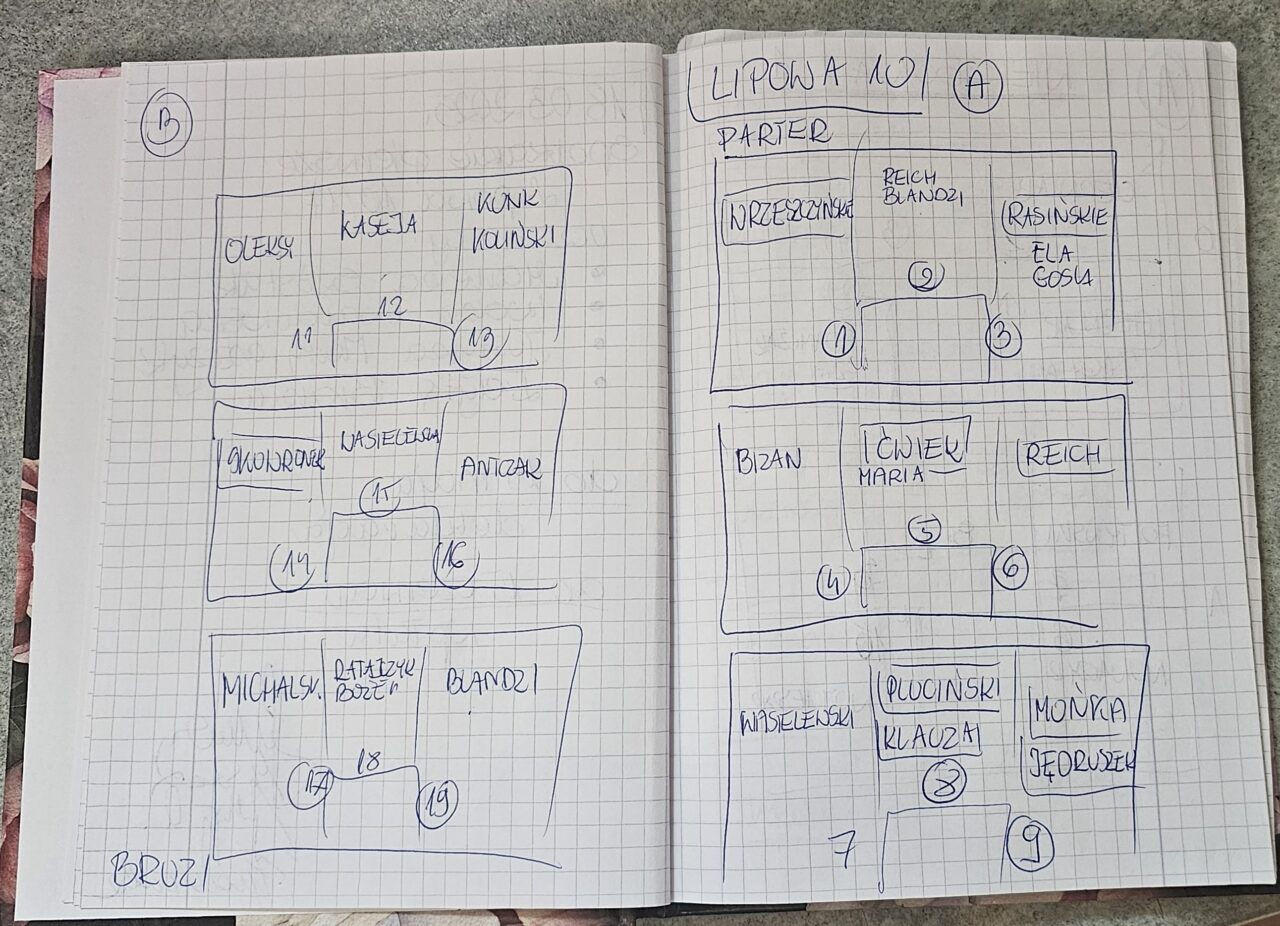 B
OLEKSY
KASEJA
KUNK
KOLIŃSKI
11
12
13
SKOWRONEK
WASIELEWSKA
ANTCZAK
14
15
16
MICHALSK.
RATAJZYK
BOŻEN
BLANDZI
17
18
19
BRUZI
LIPOWA 10
A
PARTER
WRZESZCZYŃSKIE
REICH
BLANDZI
RASIŃSKIE
ELA
GOSIA
1
2
3
BIZAN
ĆWIEK
MARIA
REICH
4
5
6
WASIELEŃSKI
PLUCIŃSKI
KLAUZA
MOŃKA
JĘDRUSZEK
7
8
9